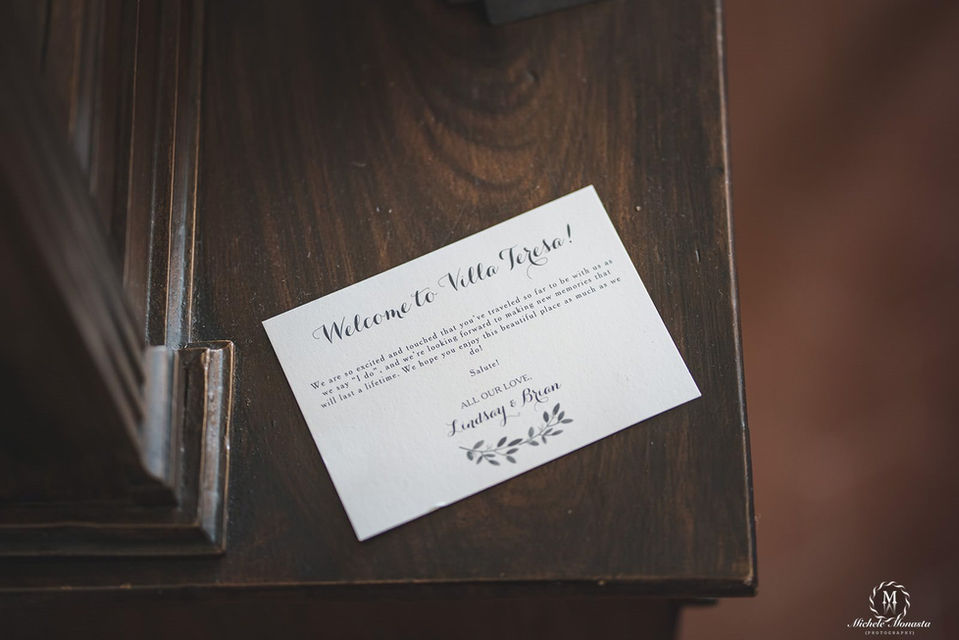 Welcome to Villa Teresa!
We are so excited and touched that you've traveled so far to be with us as
we say "I do", and we're looking forward to making new memories that
will last a lifetime. We hope you enjoy this beautiful place as much as we
do!
Salute!
ALL OUR LOVE,
Lindsay & Brian
M
Michele Monasta
{PHOTOGRAPHY}